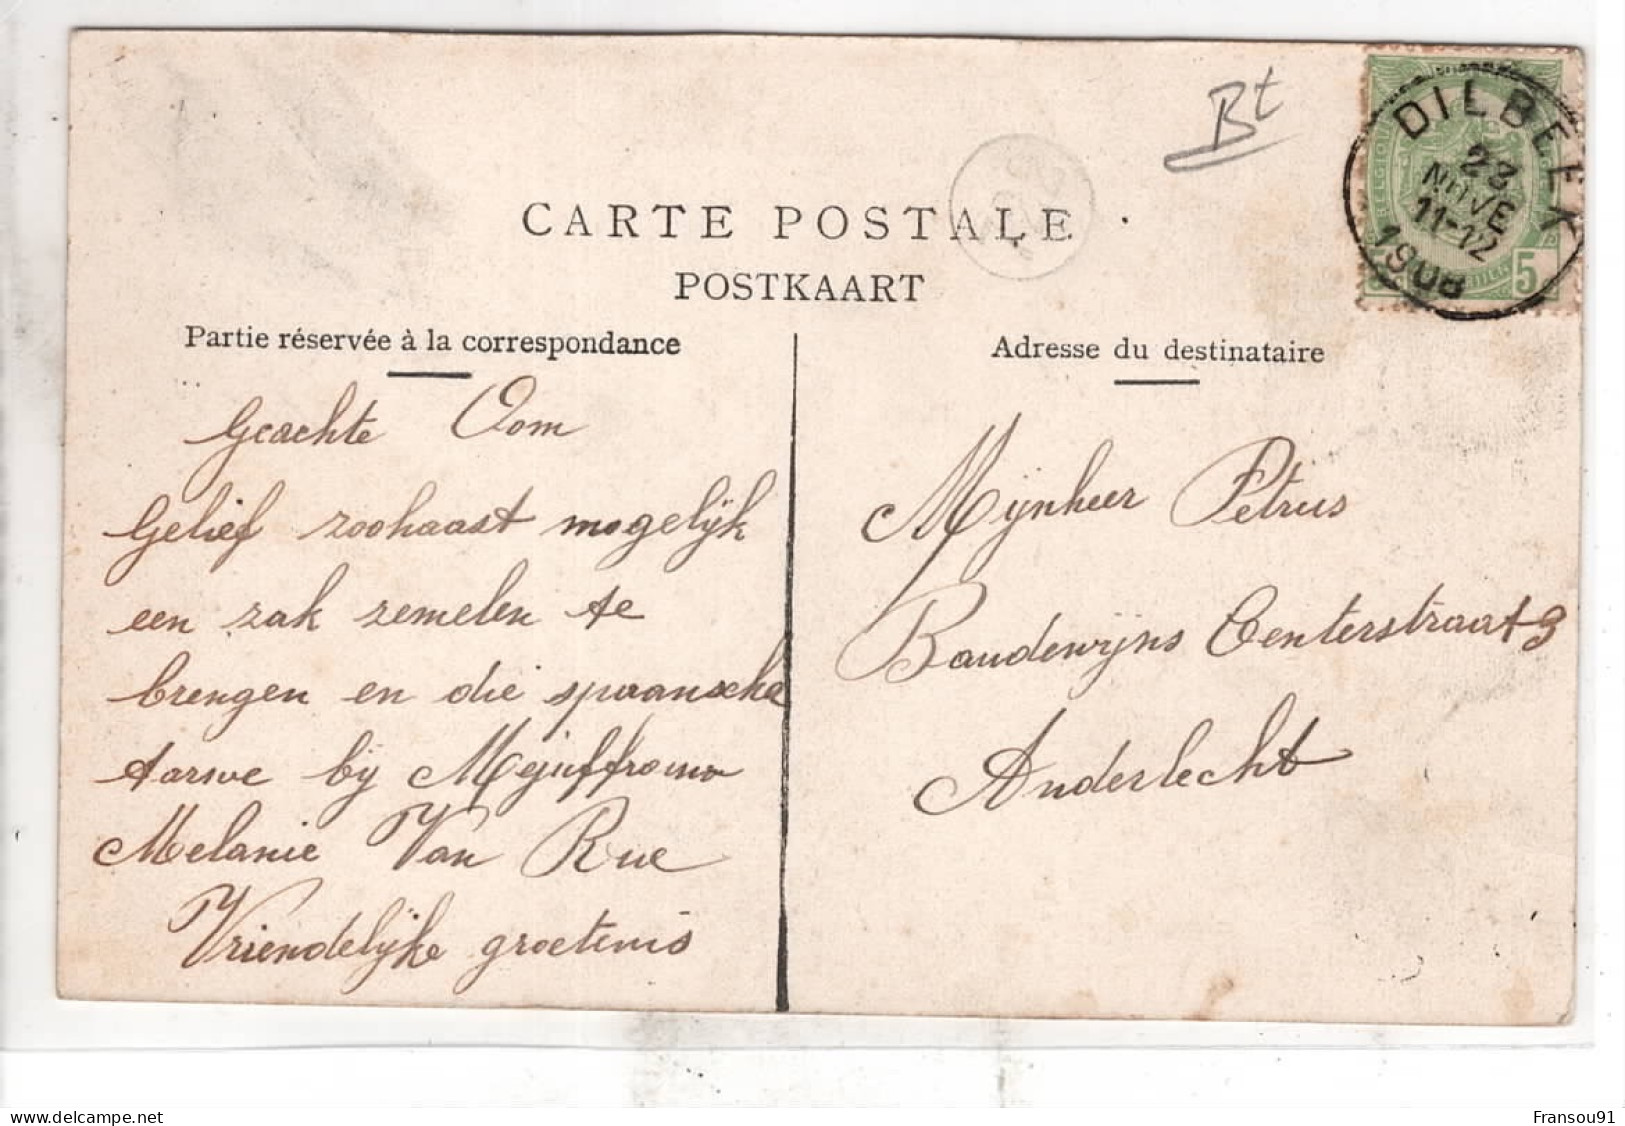 Bt
DILBEEK
23
NOVE
11-12
1908
BELGIQUE
5
CARTE POSTALE
POSTKAART
Partie réservée à la correspondance
Adresse du destinataire
Geachte Oom
Gelief zoohaast mogelijk
een zak zemelen te
brengen en die spaansche
tarwe bij Mejuffrouw
Melanie Van Rue
Vriendelijke groetenis
Mijnheer Petrus
Baudewijns Centerstraat 3
Anderlecht
delcampe.net
Fransou91